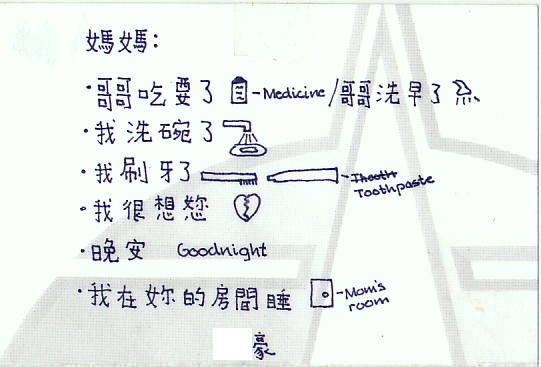 媽媽：
·哥哥吃要了 - Medicine / 哥哥洗早了
·我洗碗了
·我刷牙了 - Tooth Toothpaste
·我很想您
·晚安 Goodnight
·我在妳的房間睡 - Mom's room
豪